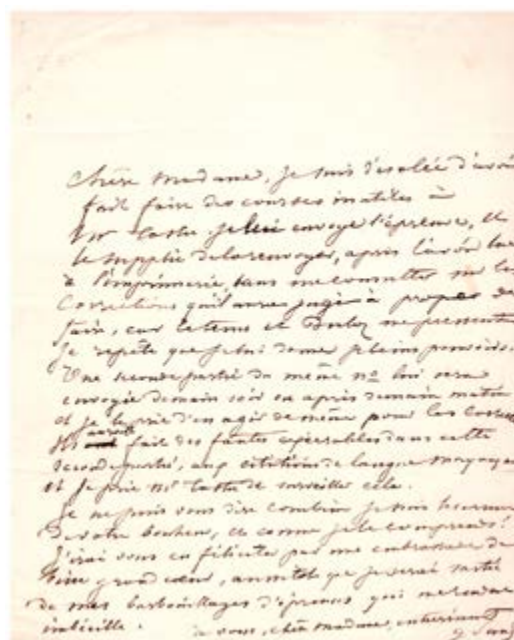 Chère Madame, je suis désolée d'avoir
fait faire des courses inutiles à
Mr Tastu. Je lui envoye l'épreuve, et
le supplie de la renvoyer, après l'avoir lue
à l'imprimerie, sans me consulter sur les
corrections qu'il aura jugé à propos de
faire, car le tems et Buloz me pressent
Je repète que je lui donne pleins pouvoirs.
Une seconde partie du même no lui sera
envoyée demain soir ou après demain matin
et je le prie d'en agir de même pour les
Ils auront fait des fautes dans cette
seconde partie, aux citations de langue
et je prie Mr Tastu de surveiller cela.
Je ne puis vous dire combien je suis heureuse
De votre bonheur, et comme je le comprends!
J'irai vous en féliciter par une embrassade de
grand cœur, aussitot que je serai sortie
de mes barbouillages d'épreuves qui me rendent
imbécille.
à vous, chère Madame, entièrement